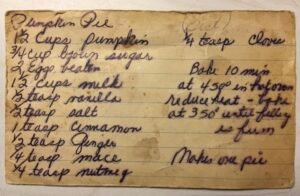 Pumpkin Pie
1½ Cups pumpkin
¾ cup brown sugar
2 eggs beaten
1½ cups milk
½ teasp vanilla
½ teasp salt
1 teasp cinnamon
½ teasp Ginger
¼ teasp mace
¼ teasp nutmeg
¼ teasp cloves
Bake 10 min
at 450° in hot oven
reduce heat - bake
at 350° until filling
is firm
Makes one pie